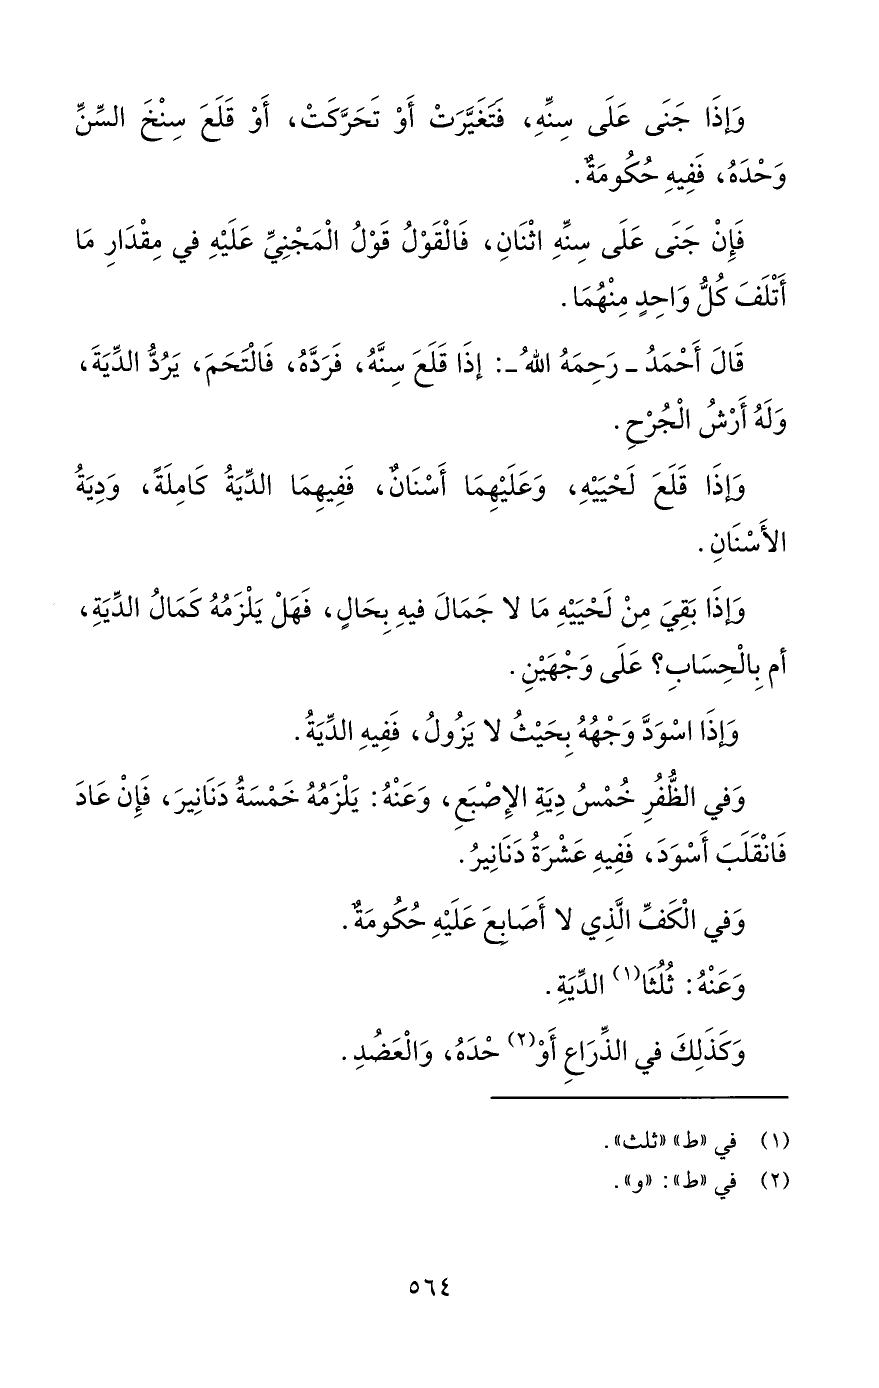 وَإِذَا جَنَى عَلَى سِنِّهِ، فَتَغَيَّرَتْ أَوْ تَحَرَّكَتْ، أَوْ قَلَعَ سِنْخَ السِّنِّ
وَحْدَهُ، فَفِيهِ حُكُومَةٌ.
فَإِنْ جَنَى عَلَى سِنِّهِ اثْنَانِ، فَالْقَوْلُ قَوْلُ الْمَجْنِيِّ عَلَيْهِ في مِقْدَارِ مَا
أَتْلَفَ كُلُّ وَاحِدٍ مِنْهُمَا.
قَالَ أَحْمَدُ ـ رَحِمَهُ اللهُ ـ: إِذَا قَلَعَ سِنَّهُ، فَرَدَّهُ، فَالْتَحَمَ، يَرُدُّ الدِّيَةَ،
وَلَهُ أَرْشُ الْجُرْحِ.
وَإِذَا قَلَعَ لَحْيَيْهِ، وَعَلَيْهِمَا أَسْنَانٌ، فَفِيهِمَا الدِّيَةُ كَامِلَةً، وَدِيَةُ
الأَسْنَانِ.
وَإِذَا بَقِيَ مِنْ لَحْيَيْهِ مَا لا جَمَالَ فيهِ بِحَالٍ، فَهَلْ يَلْزَمُهُ كَمَالُ الدِّيَةِ،
أم بِالْحِسَابِ؟ عَلَى وَجْهَيْنِ.
وَإِذَا اسْوَدَّ وَجْهُهُ بِحَيْثُ لا يَزُولُ، فَفِيهِ الدِّيَةُ.
وَفي الظُّفُرِ خُمْسُ دِيَةِ الإِصْبَعِ، وَعَنْهُ: يَلْزَمُهُ خَمْسَةُ دَنَانِيرَ، فَإِنْ عَادَ
فَانْقَلَبَ أَسْوَدَ، فَفِيهِ عَشْرَةُ دَنَانِيرُ.
وَفي الْكَفِّ الَّذِي لا أَصَابِعَ عَلَيْهِ حُكُومَةٌ.
وَعَنْهُ: ثُلُثَا(١) الدِّيَةِ.
وَكَذَلِكَ في الذِّرَاعِ أَوْ(٢) حْدَهُ، وَالْعَضُدِ.
(١) في «ط» «ثلث».
(٢) في «ط»: «و».
٥٦٤